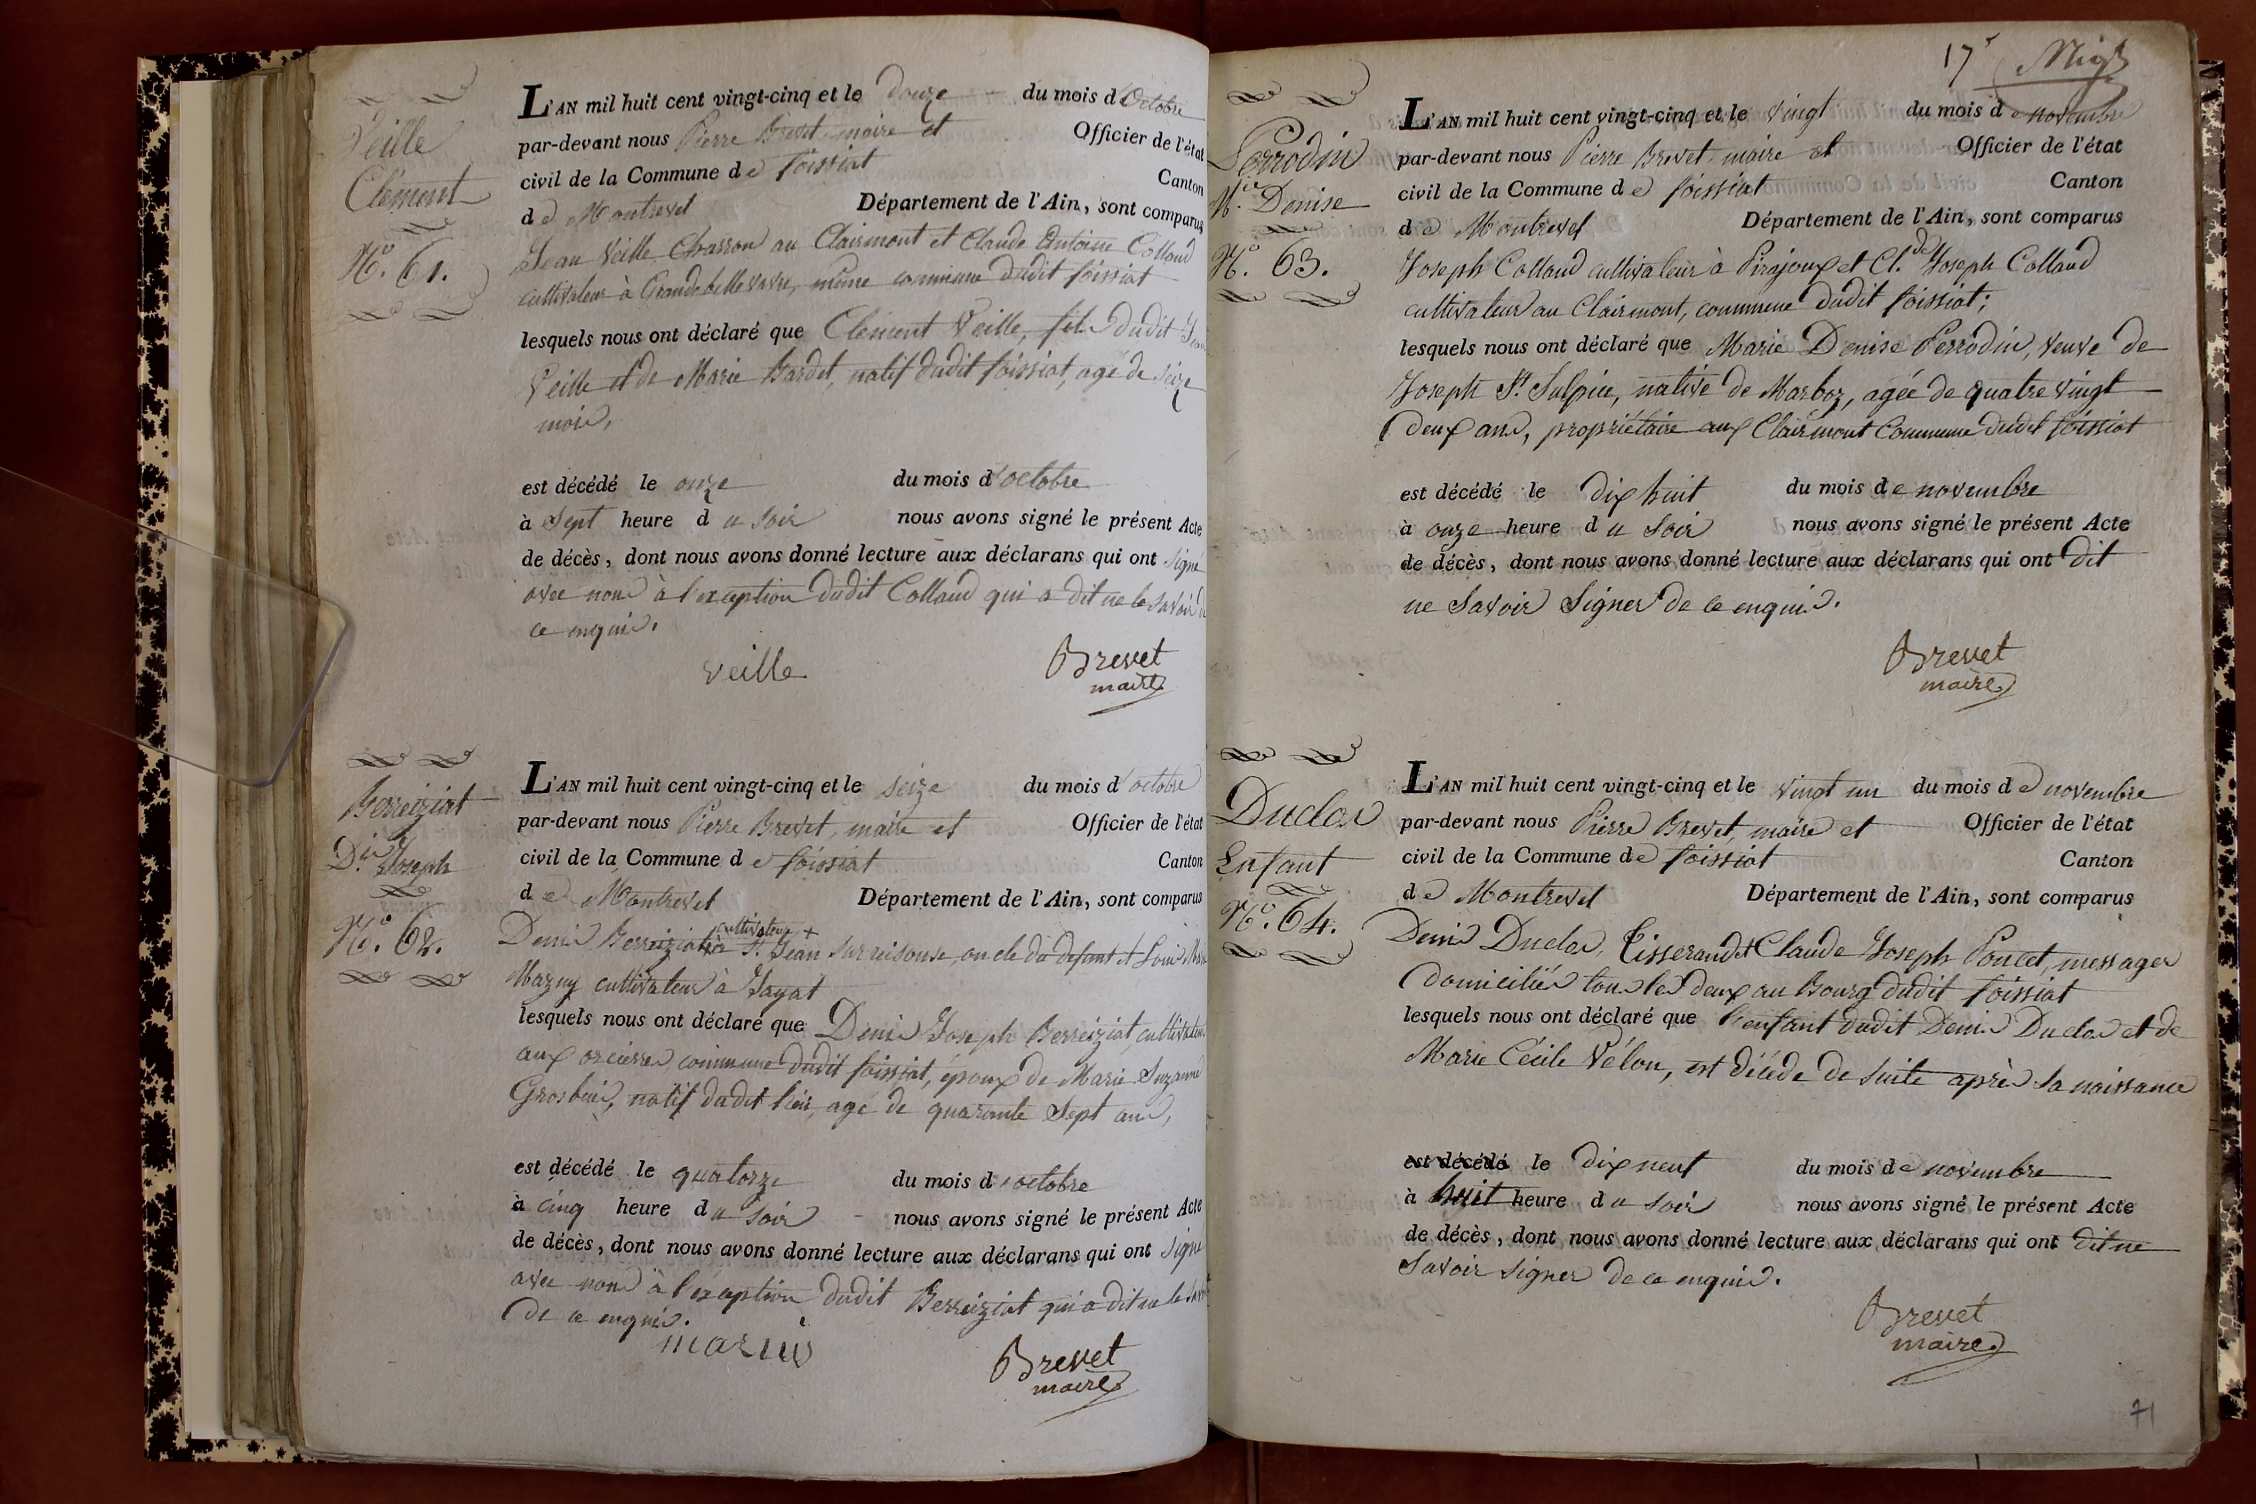 Veille
Clément
N.º 61.
L'AN mil huit cent vingt-cinq et le douze du mois d'Octobre
par-devant nous Pierre Brevet, maire et Officier de l'état
civil de la Commune de foissiat Canton
de Montrevel Département de l'Ain, sont comparus
Jean Veille Charron au Clairmont et Claude Antoine Colland
cultivateur à Grandebellevavre, même commune dudit foissiat
lesquels nous ont déclaré que Clément Veille, fils dudit Jean
Veille et de Marie Bardet, natif dudit foissiat, agé de seize
mois,
est décédé le onze du mois d'octobre
à Sept heure du soir nous avons signé le présent Acte
de décès, dont nous avons donné lecture aux déclarans qui ont signé
avec nous à l'exception dudit Colland qui a dit ne le savoir de
ce enquis.
Veille
Brevet
maire
Berreiziat
D.is Joseph
N.º 62.
L'AN mil huit cent vingt-cinq et le seize du mois d'octobre
par-devant nous Pierre Brevet, maire et Officier de l'état
civil de la Commune de foissiat Canton
de Montrevel Département de l'Ain, sont comparus
cultivateur +
Denis Berreiziat à St. Jean sur reisouse, oncle du defunt et Louis Marie
Mazuy cultivateur à Jayat
lesquels nous ont déclaré que Denis Joseph Berreiziat, cultivateur
aux orcieres commune dudit foissiat, époux de Marie Suzanne
Grosbuis, natif dudit lieu, agé de quarante Sept ans,
est décédé le quatorze du mois d'octobre
à cinq heure du soir nous avons signé le présent Acte
de décès, dont nous avons donné lecture aux déclarans qui ont signé
avec nous à l'exception dudit Berreiziat qui a dit ne le savoir
de ce enquis.
Brevet
maire
17e
Perrodin
M.ie Denise
N.º 63.
L'AN mil huit cent vingt-cinq et le vingt du mois de novembre
par-devant nous Pierre Brevet, maire et Officier de l'état
civil de la Commune de foissiat Canton
de Montrevel Département de l'Ain, sont comparus
Joseph Colland cultivateur à Pirajoux et Cl.de Joseph Colland
cultivateur au Clairmont, commune dudit foissiat;
lesquels nous ont déclaré que Marie Denise Perrodin, veuve de
Joseph St. Sulpice, native de Marboz, agée de quatre vingt
deux ans, propriétaire aux Clairmont Commune dudit foissiat
est décédé le dix huit du mois de novembre
à onze heure du soir nous avons signé le présent Acte
de décès, dont nous avons donné lecture aux déclarans qui ont dit
ne savoir signer de ce enquis.
Brevet
maire
Duclos
Enfant
N.º 64.
L'AN mil huit cent vingt-cinq et le vingt un du mois de novembre
par-devant nous Pierre Brevet, maire et Officier de l'état
civil de la Commune de foissiat Canton
de Montrevel Département de l'Ain, sont comparus
Denis Duclos, Tisserand et Claude Joseph Poncet, messager
domiciliés tous les deux au Bourg dudit foissiat
lesquels nous ont déclaré que l'enfant dudit Denis Duclos et de
Marie Cécile Vélon, est décédé de suite après sa naissance
est décédé le dix neuf du mois de novembre
à huit heure du soir nous avons signé le présent Acte
de décès, dont nous avons donné lecture aux déclarans qui ont dit ne
savoir signer de ce enquis.
Brevet
maire
71